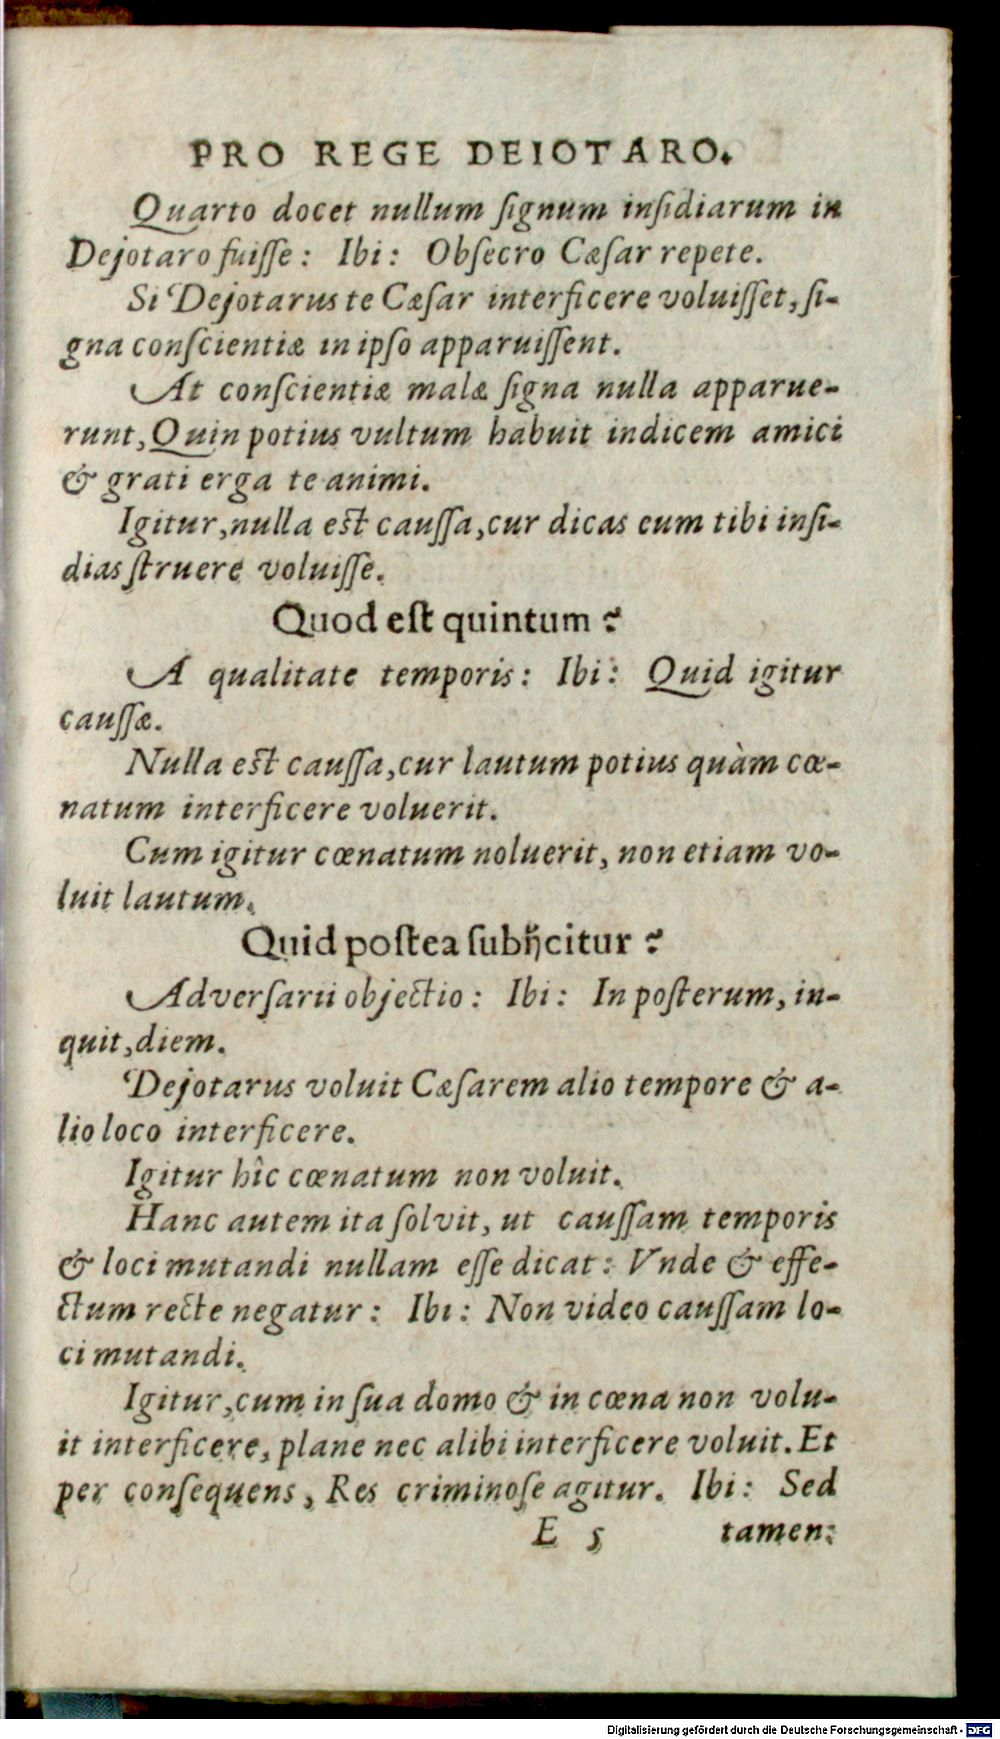 PRO REGE DEIOTARO.
Quarto docet nullum ſignum inſidiarum in
Dejotaro fuiſſe : Ibi : Obſecro Cæſar repete.
Si Dejotarus te Cæſar interficere voluiſſet, ſi-
gna conſcientiæ in ipſo apparuiſſent.
At conſcientiæ malæ ſigna nulla apparue-
runt, Quin potius vultum habuit indicem amici
& grati erga te animi.
Igitur, nulla eſt cauſſa, cur dicas eum tibi inſi-
dias ſtruere voluiſſe.
Quod eſt quintum ?
A qualitate temporis : Ibi : Quid igitur
cauſſæ.
Nulla eſt cauſſa, cur lautum potius quàm cœ-
natum interficere voluerit.
Cum igitur cœnatum noluerit, non etiam vo-
luit lautum.
Quid poſtea ſubijcitur ?
Adverſarii objectio : Ibi : In poſterum, in-
quit, diem.
Dejotarus voluit Cæſarem alio tempore & a-
lio loco interficere.
Igitur hîc cœnatum non voluit.
Hanc autem ita ſolvit, ut cauſſam temporis
& loci mutandi nullam eſſe dicat : Vnde & effe-
ctum recte negatur : Ibi : Non video cauſſam lo-
ci mutandi.
Igitur, cum in ſua domo & in cœna non volu-
it interficere, plane nec alibi interficere voluit. Et
per conſequens, Res criminoſe agitur. Ibi : Sed
E 5 tamen:
Digitalisierung gefördert durch die Deutsche Forschungsgemeinschaft - DFG